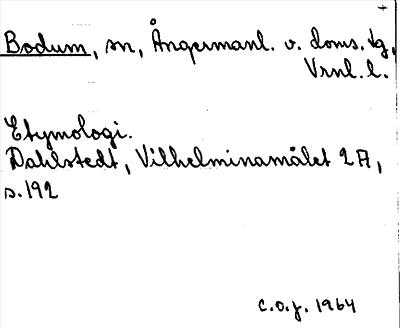 Bodum, sn, Ångermanl. v. doms. tg,
Vrnl. l.
Etymologi.
Dahlstedt, Vilhelminamålet 2 A,
s. 192
C.O.J. 1964